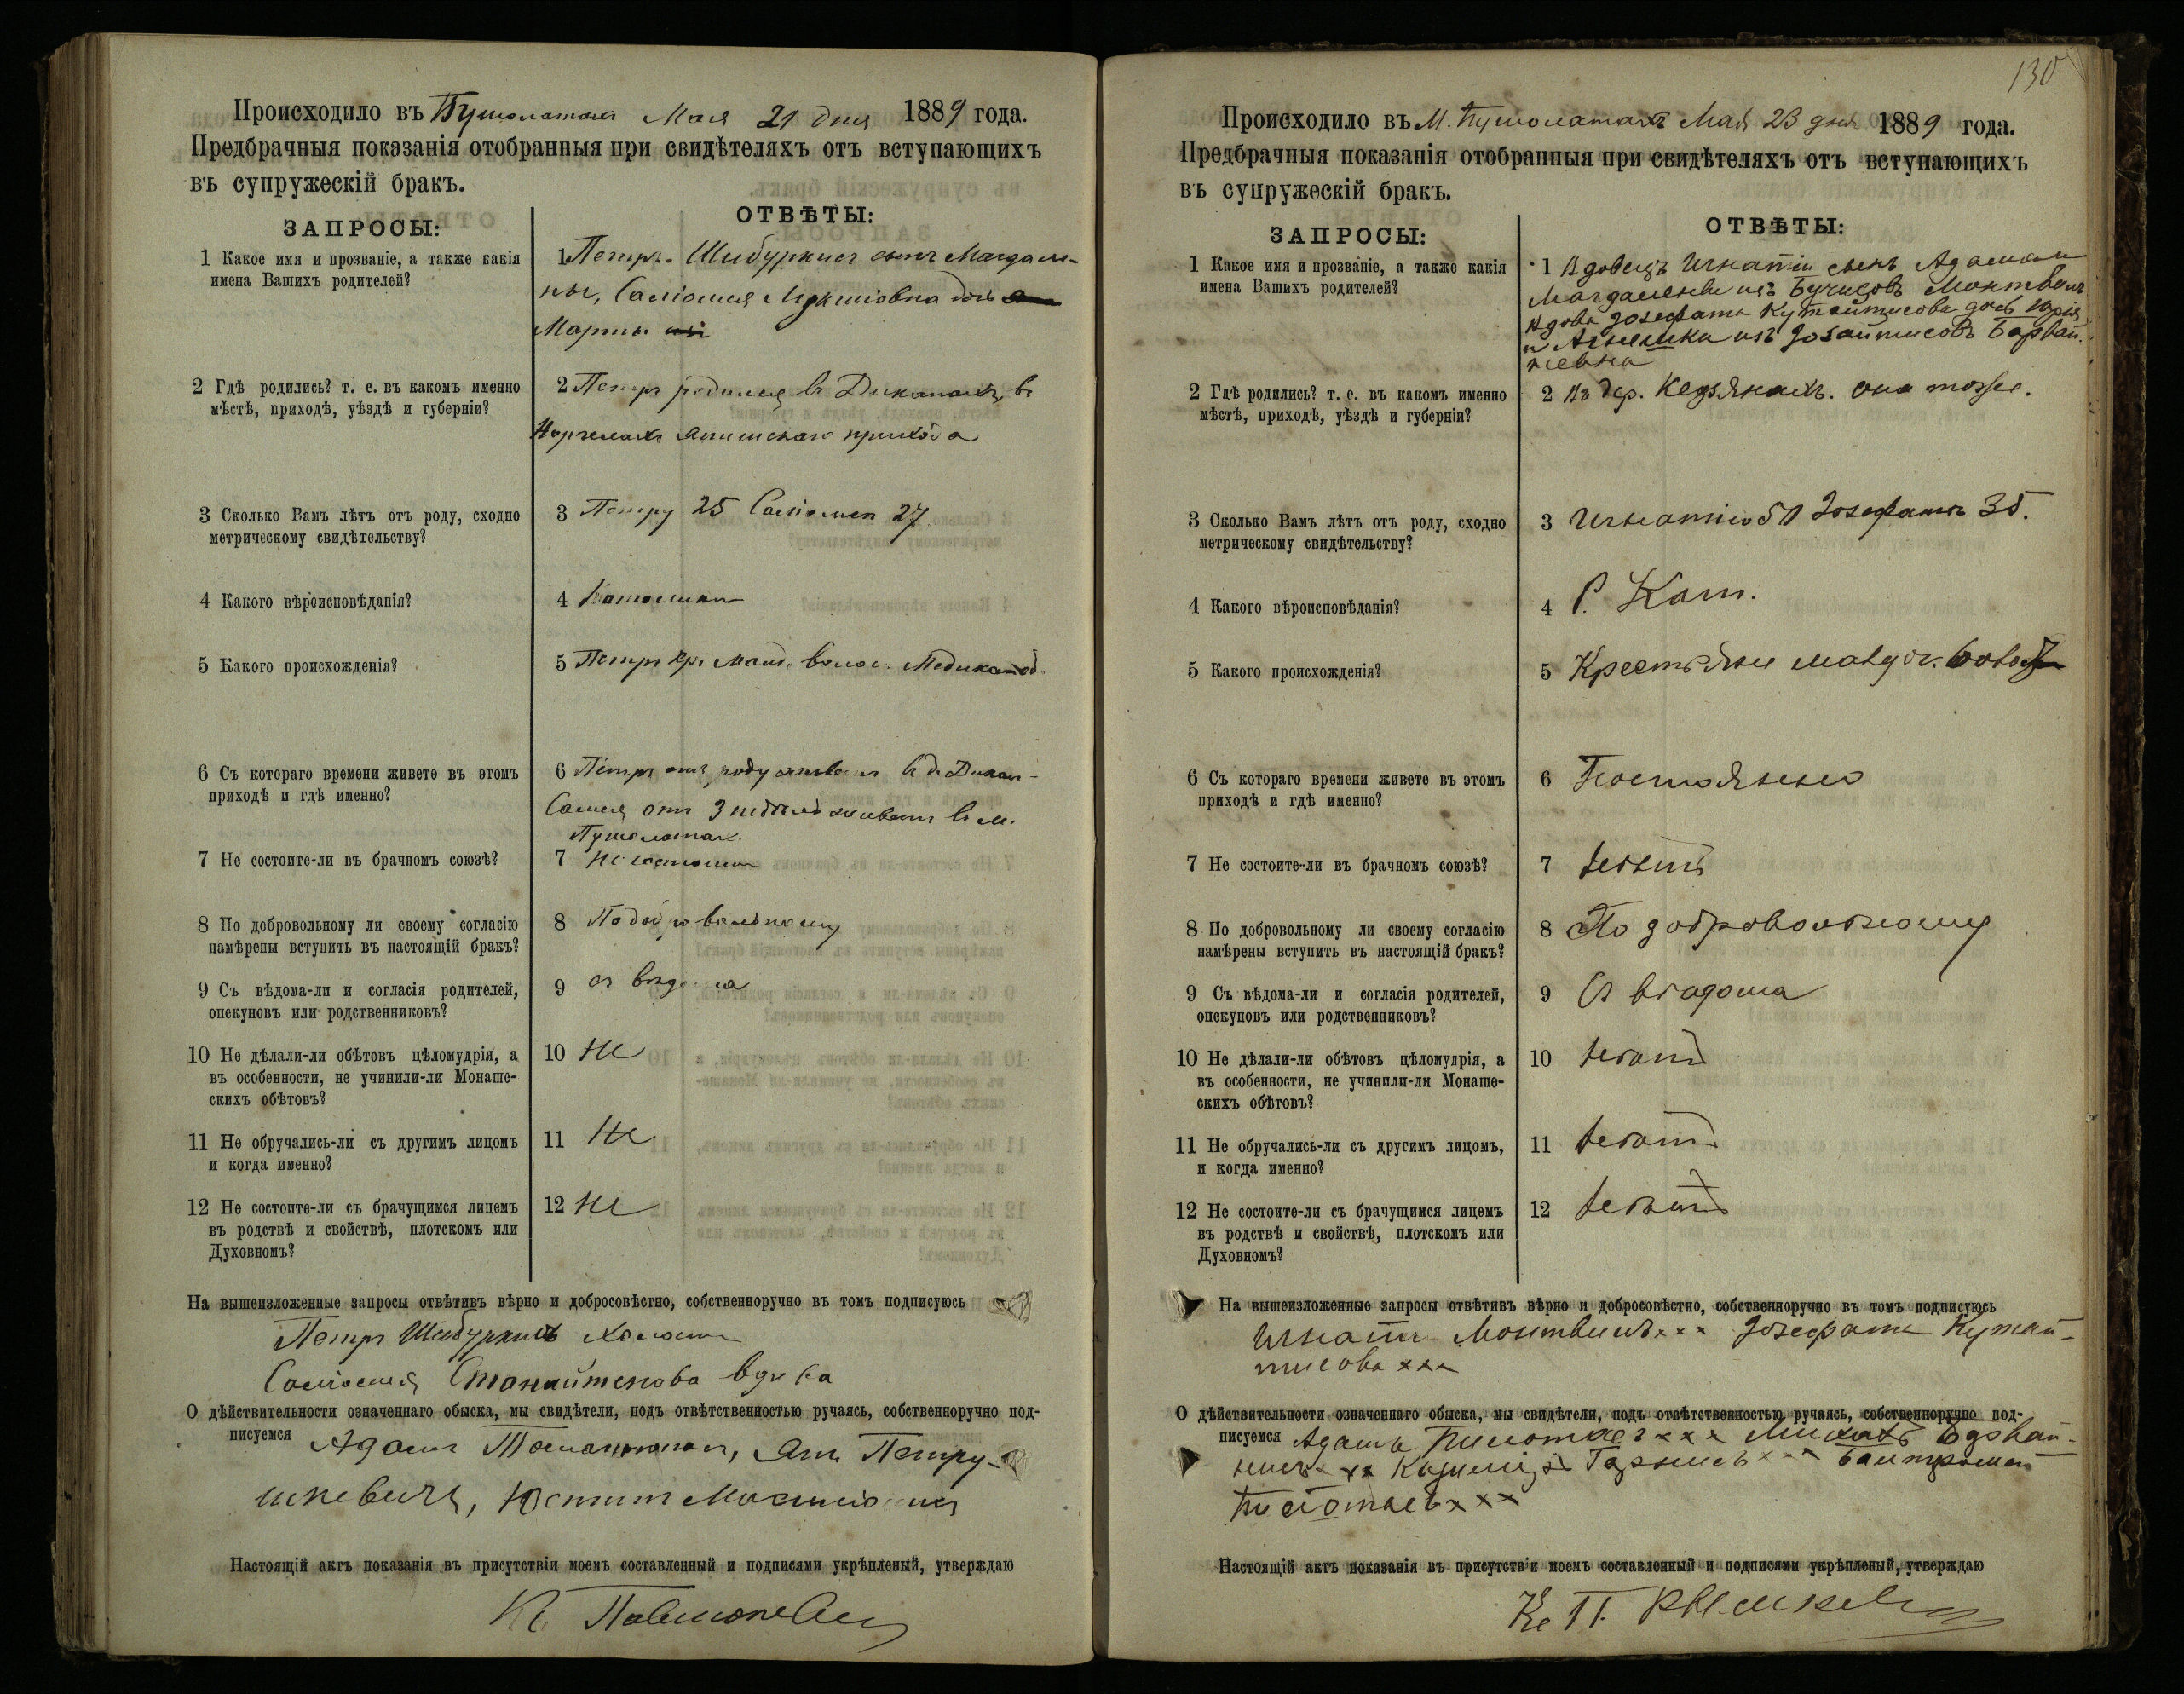 Происходило въ Пушолатахъ Мая 21 дня 1889 года.
Предбрачныя показанія отобранныя при свидѣтеляхъ отъ вступающихъ
въ супружескій бракъ.
ЗАПРОСЫ:
ОТВѢТЫ:
1 Какое имя и прозваніе, а также какія
имена Вашихъ родителей?
1 Петръ Шибуркисъ сынъ Магдале-
ны, Саломея дочь
Марты
2 Гдѣ родились? т. е. въ какомъ именно
мѣстѣ, приходѣ, уѣздѣ и губерніи?
2 Петръ родился въ Диконахъ, въ
прихода
3 Сколько Вамъ лѣтъ отъ роду, сходно
метрическому свидѣтельству?
3 Петру 25 Саломеи 27
4 Какого вѣроисповѣданія?
4 Католики
5 Какого происхожденія?
5 Петръ кр. волос.
6 Съ котораго времени живете въ этомъ
приходѣ и гдѣ именно?
6 Петръ отъ роду въ д. Дикон-
отъ 3 въ м.
Пушолатахъ
7 Не состоите-ли въ брачномъ союзѣ?
7 Не состоимъ
8 По добровольному ли своему согласію
намѣрены вступить въ настоящій бракъ?
8 По добровольному
9 Съ вѣдома-ли и согласія родителей,
опекуновъ или родственниковъ?
9 съ вѣдома
10 Не дѣлали-ли обѣтовъ цѣломудрія, а
въ особенности, не учинили-ли Монаше-
скихъ обѣтовъ?
10 Не
11 Не обручались-ли съ другимъ лицомъ
и когда именно?
11 Не
12 Не состоите-ли съ брачущимся лицемъ
въ родствѣ и свойствѣ, плотскомъ или
Духовномъ?
12 Не
На вышеизложенные запросы отвѣтивъ вѣрно и добросовѣстно, собственноручно въ томъ подписуюсь
Петръ Шибуркисъ холостъ
Саломея Станайтекова вдова
О дѣйствительности означеннаго обыска, мы свидѣтели, подъ отвѣтственностью ручаясь, собственноручно под-
писуемся Адамъ Янъ Петру-
шкевичъ, Юстинъ
Настоящій актъ показанія въ присутствіи моемъ составленный и подписями укрѣпленый, утверждаю
Кс.
130
Происходило въ М. Пушолатахъ Мая 23 дня 1889 года.
Предбрачныя показанія отобранныя при свидѣтеляхъ отъ вступающихъ
въ супружескій бракъ.
ЗАПРОСЫ:
ОТВѢТЫ:
1 Какое имя и прозваніе, а также какія
имена Вашихъ родителей?
1 Вдовецъ Игнатій сынъ Адама и
Магдалены изъ Монтвилъ
Вдова Іозефата дочь Юрія
и Агнешки изъ
2 Гдѣ родились? т. е. въ какомъ именно
мѣстѣ, приходѣ, уѣздѣ и губерніи?
2 Въ дер. Кедянахъ. Она тоже.
3 Сколько Вамъ лѣтъ отъ роду, сходно
метрическому свидѣтельству?
3 Игнатію 51 Іозефатъ 35.
4 Какого вѣроисповѣданія?
4 Р. Кат.
5 Какого происхожденія?
5 Крестьяне
6 Съ котораго времени живете въ этомъ
приходѣ и гдѣ именно?
6 Постоянно
7 Не состоите-ли въ брачномъ союзѣ?
7 Нетъ
8 По добровольному ли своему согласію
намѣрены вступить въ настоящій бракъ?
8 По добровольному
9 Съ вѣдома-ли и согласія родителей,
опекуновъ или родственниковъ?
9 Съ вѣдома
10 Не дѣлали-ли обѣтовъ цѣломудрія, а
въ особенности, не учинили-ли Монаше-
скихъ обѣтовъ?
10
11 Не обручались-ли съ другимъ лицомъ,
и когда именно?
11
12 Не состоите-ли съ брачущимся лицемъ
въ родствѣ и свойствѣ, плотскомъ или
Духовномъ?
12
На вышеизложенные запросы отвѣтивъ вѣрно и добросовѣстно, собственноручно въ томъ подписуюсь
Игнатій Монтвилъ ххх Іозефата
ххх
О дѣйствительности означеннаго обыска, мы свидѣтели, подъ отвѣтственностью ручаясь, собственноручно под-
писуемся Адамъ ххх
ххх
Настоящій актъ показанія въ присутствіи моемъ составленный и подписями укрѣпленый, утверждаю
Кс. П.